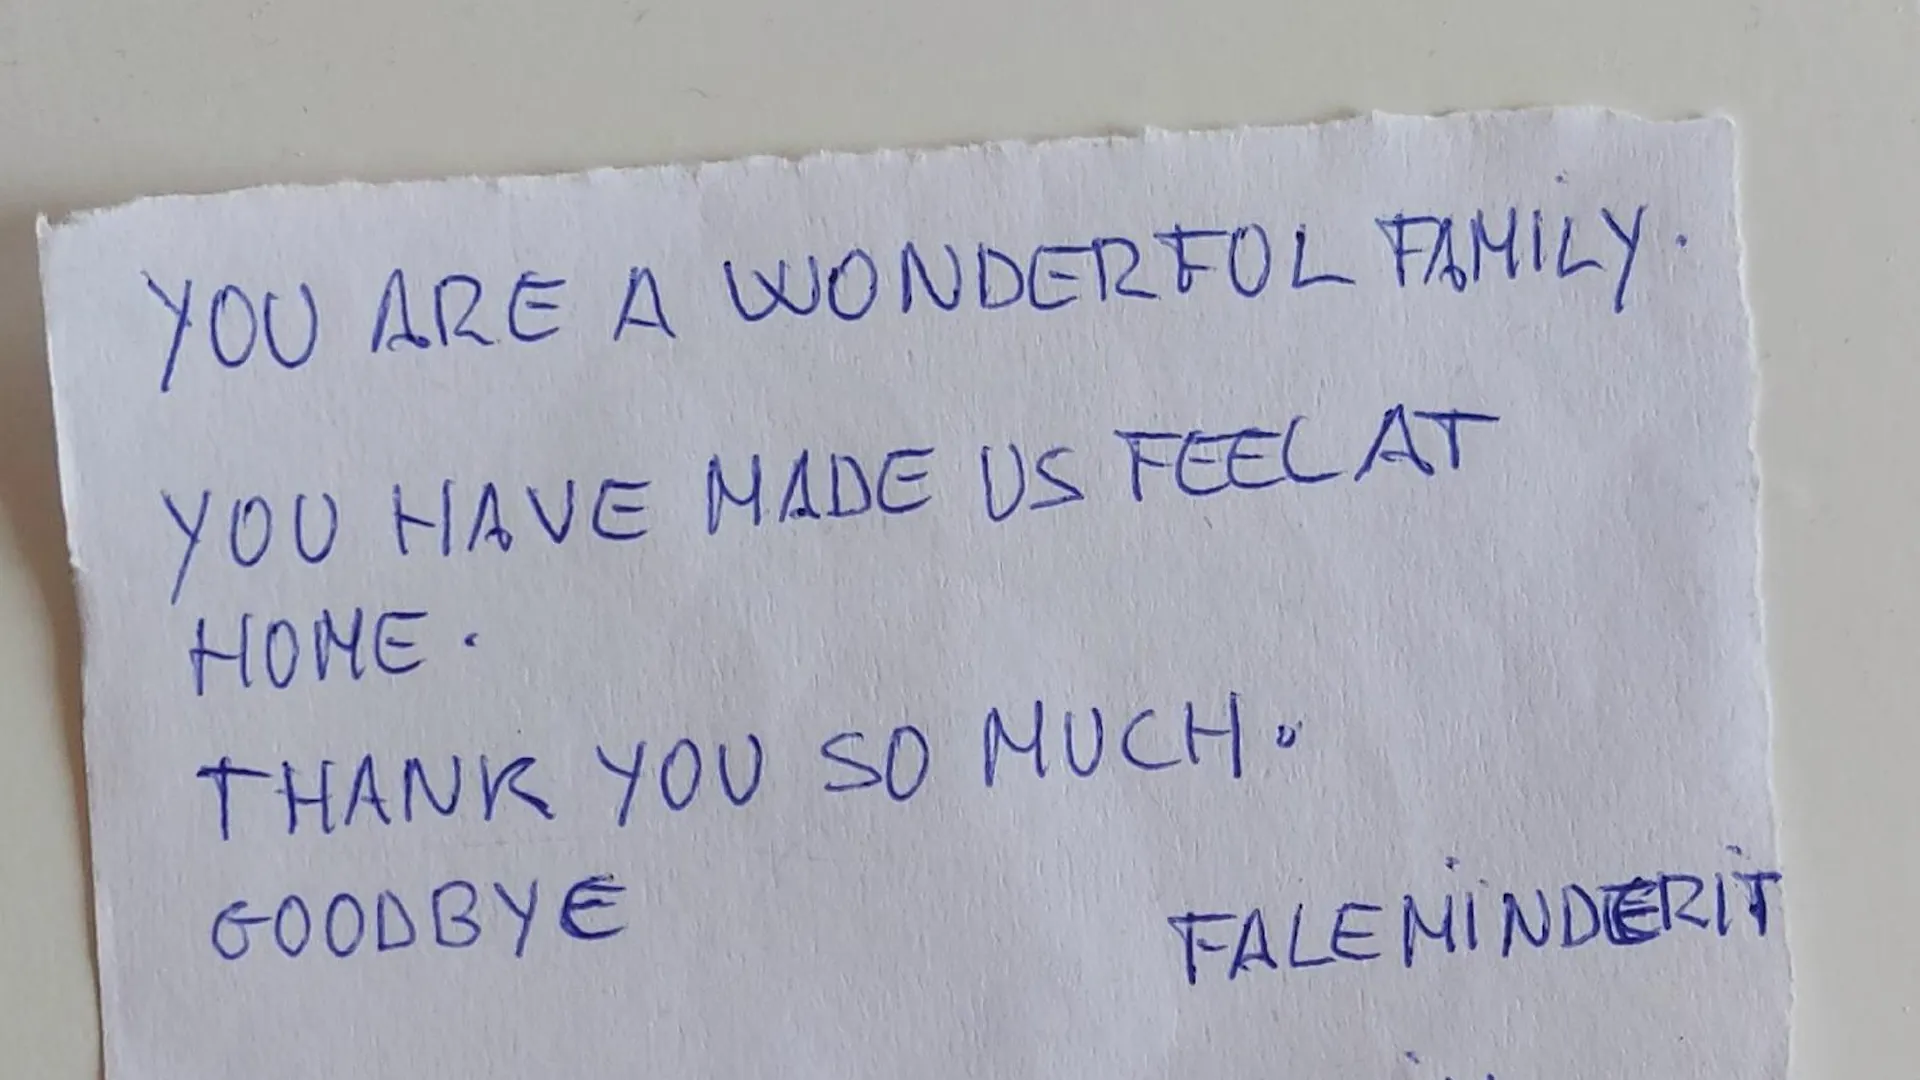 YOU ARE A WONDERFUL FAMILY.
YOU HAVE MADE US FEEL AT
HOME.
THANK YOU SO MUCH.
GOODBYE
FALEMINDERIT